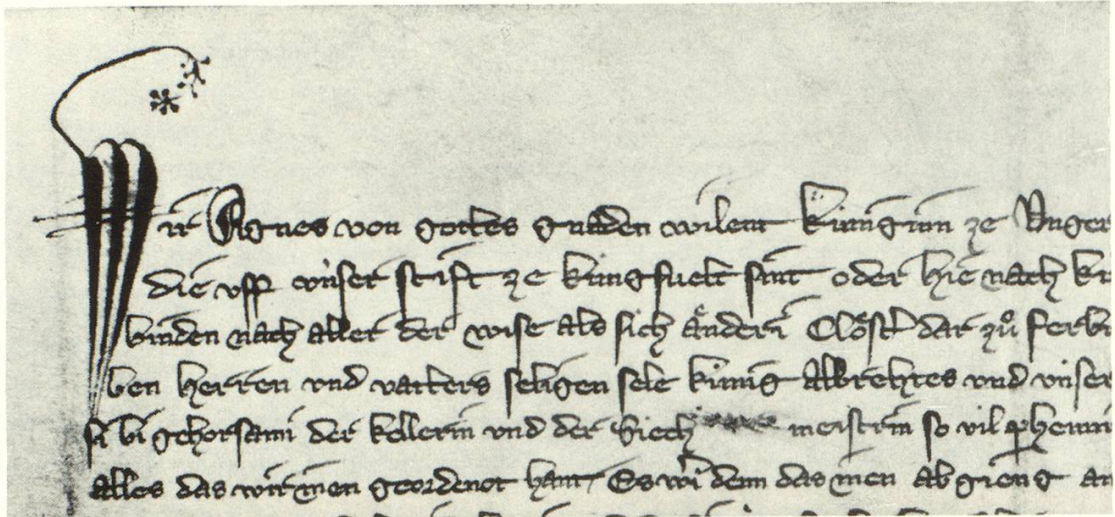 Wir Agnes von gottes gnaden wilent kúnginn ze Unger
die uff unser stift ze kúngsvelt sint oder hie nach
binden nach aller der wise als sich ander Clöster dar zů
ben herren und vatters seligen sele kúnig Albrehtes und unser
si bi gehorsami der kellerin und der Siech meistrin so vil
alles das wir inen geordenot hant Es wer denn das inen ab gieng an